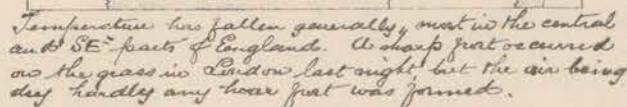 Temperature has fallen generally, most in the central
and SE- parts of England. A sharp frost occurred
on the grass in London last night, but the air being
dry hardly any hoar frost was formed.